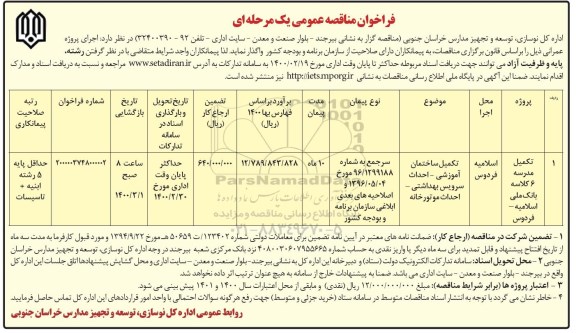 فراخوان مناقصه عمومی یک مرحله‌ای
اداره کل نوسازی، توسعه و تجهیز مدارس خراسان جنوبی (مناقصه گزار به نشانی بیرجند - بلوار صنعت و معدن - سایت اداری - تلفن ۹۲ - ۳۲۴۰۰۳۹۰) در نظر دارد: اجرای پروژه
عمرانی ذیل را براساس قانون برگزاری مناقصات، به پیمانکاران دارای صلاحیت از سازمان برنامه و بودجه کشور واگذار نماید. لذا پیمانکاران واجد شرایط متقاضی با در نظر گرفتن رشته،
پایه و ظرفیت آزاد می توانند جهت دریافت اسناد مربوطه حداکثر تا پایان وقت اداری مورخ ۱۴۰۰/۰۲/۱۹ به سامانه تدارکات به آدرس www.setadiran.ir مراجعه و نسبت به دریافت اسناد و مدارک
اقدام نمایند. ضمنا این آگهی در پایگاه ملی اطلاع رسانی مناقصات به نشانی http://iets.mporg.ir نیز منتشر شده است.
پروژه | محل اجرا | موضوع | نوع پیمان | مدت پیمان | برآورد براساس فهارس بها ۱۴۰۰ (ریال) | تضمین ارجاع کار (ریال) | تاریخ تحویل و بارگذاری اسناد در سامانه تدارکات | تاریخ بازگشایی | شماره فراخوان | رتبه صلاحیت پیمانکاری
۱ | تکمیل مدرسه ۶ کلاسه بانک ملی اسلامیه - فردوس | اسلامیه فردوس | تکمیل ساختمان آموزشی - احداث سرویس بهداشتی - احداث موتورخانه | سرجمع به شماره ۹۶/۱۲۹۹۱۸۸ مورخ ۱۳۹۶/۰۵/۰۴ و اصلاحیه های بعدی ابلاغی سازمان برنامه و بودجه کشور | ۱۰ ماه | ۱۲/۷۸۹/۸۴۳/۸۲۸ | ۶۴۰/۰۰۰/۰۰۰ | حداکثر پایان وقت اداری مورخ ۱۴۰۰/۲/۳۰ | ساعت ۸ صبح ۱۴۰۰/۳/۱ | ۲۰۰۰۰۰۳۷۴۸۰۰۰۰۰۲ | حداقل پایه ۵ رشته ابنیه + تاسیسات
۱ - تضمین شرکت در مناقصه (ارجاع کار): ضمانت نامه های معتبر در آیین نامه تضمین برای معاملات دولتی شماره ۱۲۳۴۰۲/ت ۵۰۶۵۹ هـ مورخ ۱۳۹۴/۹/۲۲ و مورد قبول کارفرما به مدت سه ماه
از تاریخ افتتاح پیشنهاد و قابل تمدید برای سه ماه دیگر یا واریز نقدی به حساب شماره ۴۰۸۰۰۳۰۶۰۷۹۵۵۶۶۵ نزد بانک مرکزی شعبه بیرجند در وجه اداره کل نوسازی، توسعه و تجهیز مدارس خراسان
جنوبی ۲ - محل تحویل اسناد: سامانه تدارکات الکترونیک دولت (ستاد) و دبیرخانه این اداره کل به نشانی بیرجند - بلوار صنعت و معدن - سایت اداری و محل گشایش پیشنهادها اتاق جلسات این اداره کل
واقع در بیرجند - بلوار صنعت و معدن - سایت اداری می باشد. ضمنا به پیشنهادات خارج از سامانه به هیچ عنوان ترتیب اثر داده نخواهد شد.
۳ - اعتبار پروژه ها (برابر شرایط مناقصه): مبلغ ۱۲/۰۰۰/۰۰۰/۰۰۰ ریال (نقدی) و مابقی از محل اعتبارات سال ۱۴۰۰ و ۱۴۰۱ پیش بینی می شود.
۴ - خاطر نشان می گردد با توجه به انتشار اسناد مناقصات متوسط در سامانه ستاد (خرید جزئی و متوسط) جهت رفع هرگونه سوالات احتمالی با واحد امور قراردادهای این اداره کل تماس حاصل فرمایید.
روابط عمومی اداره کل نوسازی، توسعه و تجهیز مدارس خراسان جنوبی